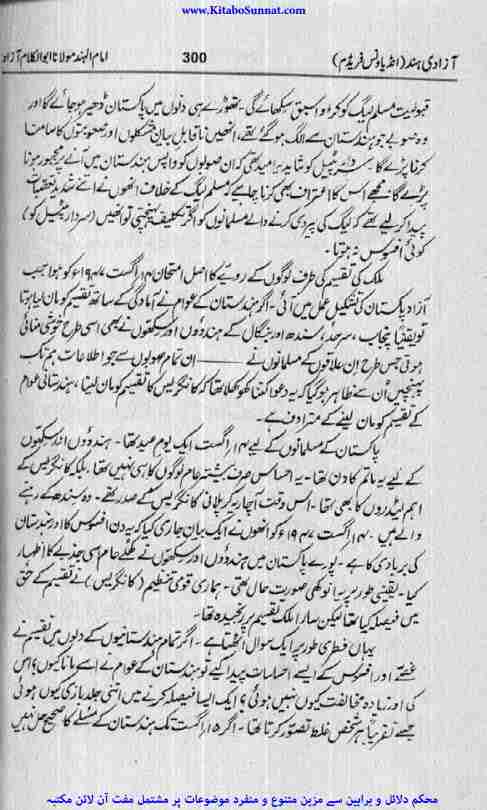 www.KitaboSunnat.com
آزادیِ ہند (انڈیا ونس فریڈم)
300
امام الہند مولانا ابوالکلام آزاد
قبولیت مسلم لیگ کو کڑوا سبق سکھائے گی۔ تھوڑے ہی دنوں میں پاکستان ڈھیر ہو جائے گا اور
وہ صوبے جو ہندستان سے الگ ہو گئے تھے، انھیں ناقابلِ بیان مشکلوں اور صعوبتوں کا سامنا
کرنا پڑے گا۔ سردار پٹیل کو شاید یہ امید بھی تھی کہ ان صوبوں کو واپس ہندستان میں آنے پر مجبور ہونا
پڑے گا۔ مجھے اس کا اعتراف بھی کرنا چاہیے کہ مسلم لیگ کے خلاف انھوں نے اتنے شدید تعصبات
پیدا کر لیے تھے کہ لیگ کی پیروی کرنے والے مسلمانوں کو اگر تکلیف پہنچتی تو انھیں (سردار پٹیل کو)
کوئی افسوس نہ ہوتا۔
ملک کی تقسیم کی طرف لوگوں کے رویے کا اصل امتحان ۱۴ اگست ۱۹۴۷ء کو ہوا جب
آزاد پاکستان کی تشکیل عمل میں آئی۔ اگر ہندستان کے عوام نے آمادگی کے ساتھ تقسیم کو مان لیا ہوتا
تو یقیناً پنجاب، سرحد، سندھ اور بنگال کے ہندوؤں اور سکھوں نے بھی اسی طرح خوشی منائی
ہوتی جس طرح ان علاقوں کے مسلمانوں نے ——— ان تمام صوبوں سے جو اطلاعات ہم تک
پہنچیں اُن سے ظاہر ہو گیا کہ یہ دعوا کتنا کھوکھلا تھا کہ کانگریس کا تقسیم کو مان لینا، ہندستانی عوام
کے تقسیم کو مان لینے کے مترادف ہے۔
پاکستان کے مسلمانوں کے لیے ۱۴ اگست ایک یومِ عید تھا۔ ہندوؤں اور سکھوں
کے لیے یہ ماتم کا دن تھا۔ یہ احساس صرف بیشتر عام لوگوں کا ہی نہیں تھا، بلکہ کانگریس کے
اہم لیڈروں کا بھی تھا۔ اس وقت آچاریہ کرپلانی کانگریس کے صدر تھے۔ وہ سندھ کے رہنے
والے ہیں۔ ۱۴ اگست ۱۹۴۷ء کو انھوں نے ایک بیان جاری کیا کہ یہ دن افسوس کا اور ہندستان
کی بربادی کا ہے۔ پورے پاکستان میں ہندوؤں اور سکھوں نے کھلے عام اسی جذبے کا اظہار
کیا۔ یقینی طور پر یہ انوکھی صورتِ حال تھی۔ ہماری قومی تنظیم (کانگریس) نے تقسیم کے حق
میں فیصلہ کیا تھا لیکن سارا ملک تقسیم پر رنجیدہ تھا۔
یہاں فطری طور پر ایک سوال اٹھتا ہے۔ اگر تمام ہندستانیوں کے دلوں میں تقسیم نے
غصے اور افسوس کے ایسے احساسات پیدا کیے تو ہندستان کے عوام نے اسے مانا کیوں؟ اس
کی اور زیادہ مخالفت کیوں نہیں ہوئی؟ ایک ایسا فیصلہ کرنے میں اتنی جلد بازی کیوں ہوئی
جسے تقریباً ہر شخص غلط تصور کرتا تھا۔ اگر ۱۵ اگست تک ہندستان کے مسئلے کا صحیح حل نہیں
محکم دلائل و براہین سے مزین متنوع و منفرد موضوعات پر مشتمل مفت آن لائن مکتبہ